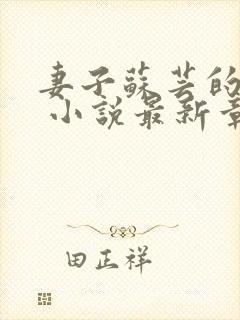 妻子蘇芸的
小說最新章
田正祥